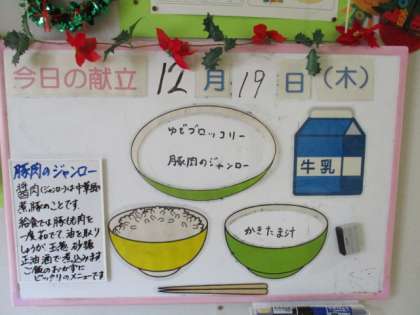 今日の献立 12月19日(木)
ゆでブロッコリー
豚肉のジャンロー
牛乳
かきたま汁
豚肉のジャンロー
醤肉(ジャンロー)は中華風
煮豚のことです。
給食では豚もも肉を
一度ゆでて油を取り
しょうが 玉葱 砂糖
正油 酒で煮込みます
ご飯のおかずに
ピッタリのメニューです